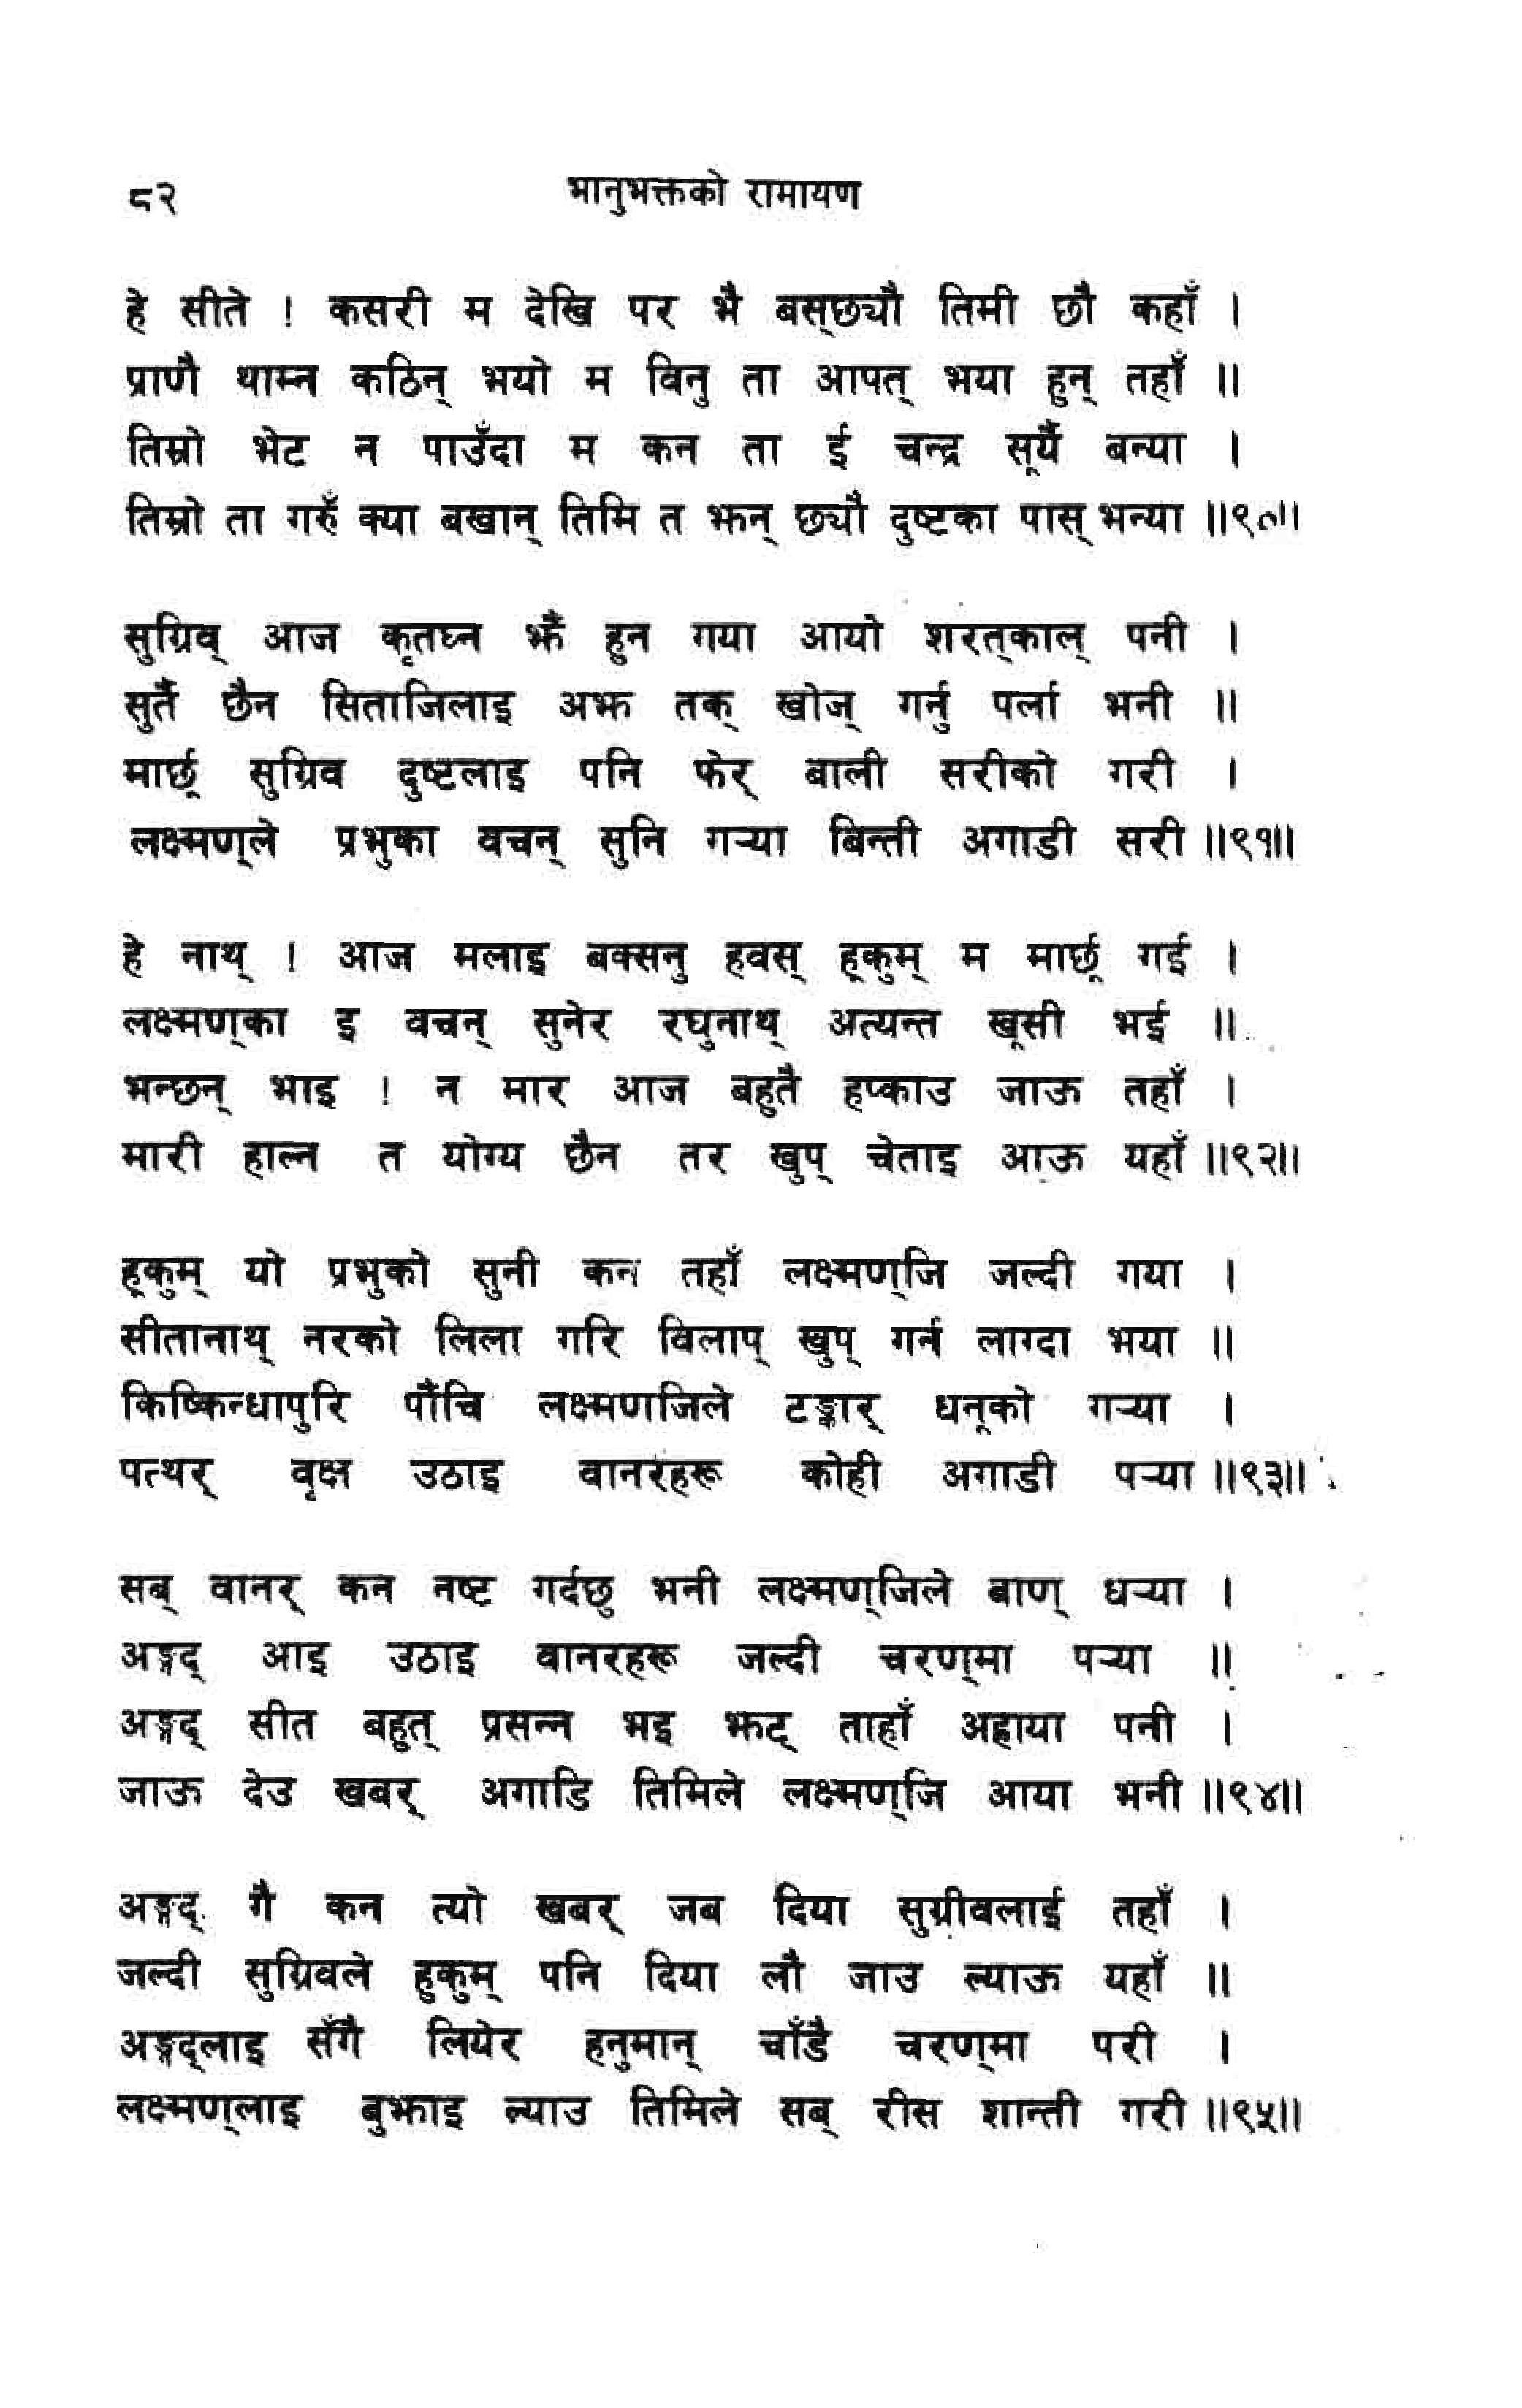 ८२ भानुभक्तको रामायण
हे सीते ! कसरी म देखि पर भै बस्छ्यौ तिमी छौ कहाँ ।
प्राणै थाम्न कठिन् भयो म विनु ता आपत् भया हुन् तहाँ ॥
तिम्रो भेट न पाउँदा म कन ता ई चन्द्र सूर्यै बन्या ।
तिम्रो ता गरुँ क्या बखान् तिमि त झन् छ्यौ दुष्टका पास् भन्या ॥९०॥
सुग्रिव् आज कृतघ्न झैं हुन गया आयो शरत्काल् पनी ।
सुर्तै छैन सिताजिलाइ अझ तक् खोज् गर्नु पर्ला भनी ॥
मार्छू सुग्रिव दुष्टलाइ पनि फेर् बाली सरीको गरी ।
लक्ष्मण्ले प्रभुका वचन् सुनि गर्‍या बिन्ती अगाडी सरी ॥९१॥
हे नाथ् ! आज मलाइ बक्सनु हवस् हूकुम् म मार्छू गई ।
लक्ष्मण्का इ वचन् सुनेर रघुनाथ् अत्यन्त खूसी भई ॥
भन्छन् भाइ ! न मार आज बहुतै हप्काउ जाऊ तहाँ ।
मारी हाल्न त योग्य छैन तर खुप् चेताइ आऊ यहाँ ॥९२॥
हूकुम् यो प्रभुको सुनी कन तहाँ लक्ष्मण्जि जल्दी गया ।
सीतानाथ् नरको लिला गरि विलाप् खुप् गर्न लाग्दा भया ॥
किष्किन्धापुरि पौंचि लक्ष्मणजिले टङ्कार् धनूको गर्‍या ।
पत्थर् वृक्ष उठाइ वानरहरू कोही अगाडी पर्‍या ॥९३॥
सब् वानर् कन नष्ट गर्दछु भनी लक्ष्मण्जिले बाण् धर्‍या ।
अङ्गद् आइ उठाइ वानरहरू जल्दी चरण्मा पर्‍या ॥
अङ्गद् सीत बहुत् प्रसन्न भइ झट् ताहाँ अह्राया पनी ।
जाऊ देउ खबर् अगाडि तिमिले लक्ष्मण्जि आया भनी ॥९४॥
अङ्गद् गै कन त्यो खबर् जब दिया सुग्रीवलाई तहाँ ।
जल्दी सुग्रिवले हुकुम् पनि दिया लौ जाउ ल्याऊ यहाँ ॥
अङ्गद्लाइ सँगै लियेर हनुमान् चाँडै चरण्मा परी ।
लक्ष्मण्लाइ बुझाइ ल्याउ तिमिले सब् रीस शान्ती गरी ॥९५॥